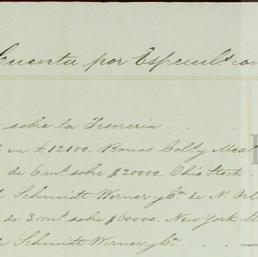 Cuenta por Especul.s con
sobre la Tesoreria
en £12100. Bonos Colb.y Mex
de 6 m.s sobre $20000. Ohio Stock
Schmidt Werner y C.a de N. Orl
de 3 m.s sobre $60000. New York
Schmidt Werner y C.a